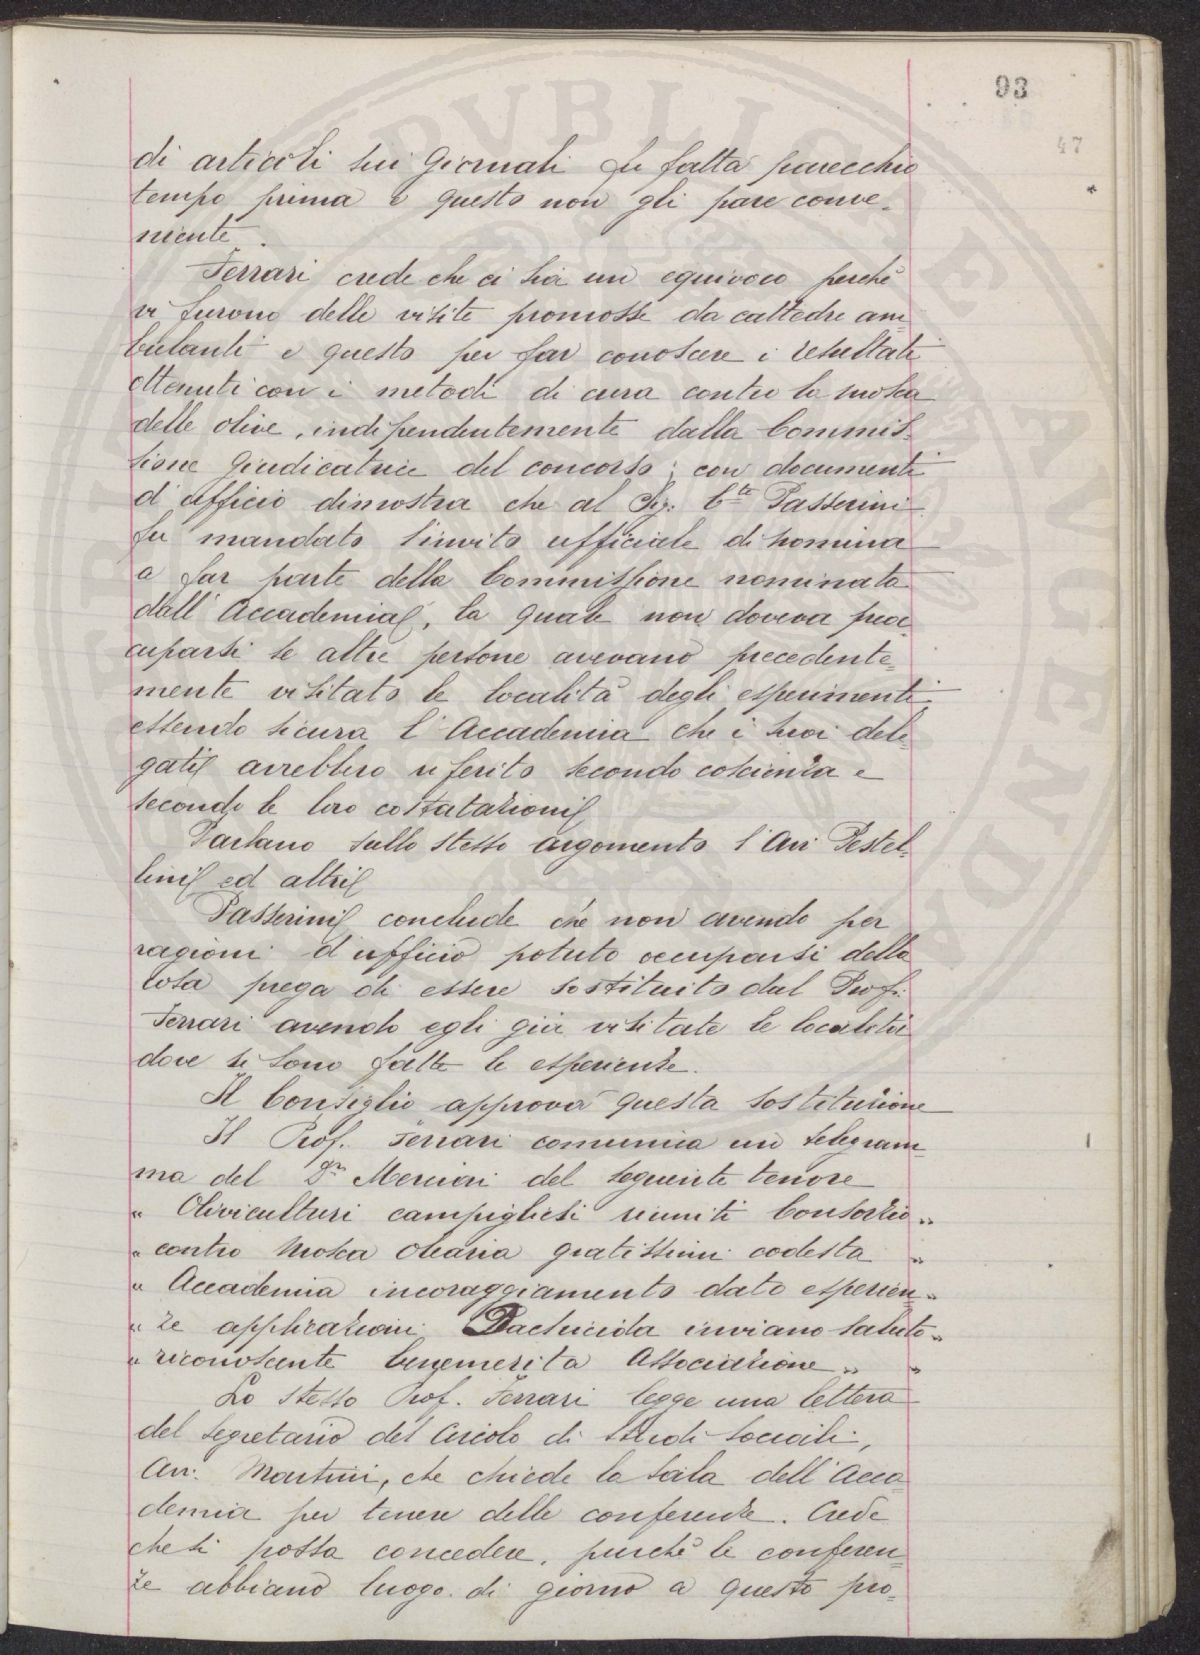 93
47
di articoli sui Giornali fu fatta parecchio
tempo prima e questo non gli pare conve=
niente.
Ferrari crede che ci sia un equivoco perchè
vi furono delle visite promosse da cattedre am=
bulanti e questo per far conoscere i resultati
ottenuti con i metodi di cura contro la mosca
delle olive, indipendentemente dalla Commis=
sione Giudicatrice del concorso; con documenti
d'ufficio dimostra che al Sig: Cte Passerini
fu mandato l'invito ufficiale di nomina
a far parte della Commissione nominata
dall'Accademia, la quale non doveva preoc=
cuparsi se altre persone avevano precedente=
mente visitato le località degli esperimenti
essendo sicura l'Accademia che i suoi dele=
gati avrebbero riferito secondo coscienza e
secondo le loro costatazioni
Parlano sullo stesso argomento l'Avv Pestel=
lini ed altri
Passerini conclude che non avendo per
ragioni d'ufficio potuto occuparsi della
cosa prega di essere sostituito dal Prof:
Ferrari avendo egli già visitate le località
dove si sono fatte le esperienze.
Il Consiglio approva questa sostituzione
Il Prof. Ferrari comunica un telegram=
ma del Dr. del seguente tenore
" Olivicultori campigliesi riuniti Consorzio "
" contro Mosca olearia gratissimi codesta "
" Accademia incoraggiamento dato esperien= "
" ze applicazioni Dachicida inviano saluto "
" riconoscente benemerita Associazione " "
Lo stesso Prof. Ferrari legge una lettera
del segretario del Circolo di Studi sociali,
Avv. Martini, che chiede la Sala dell'Acca
demia per tenere delle conferenze. Crede
che si possa concedere, purchè le conferen=
ze abbiano luogo di giorno a questo pro=